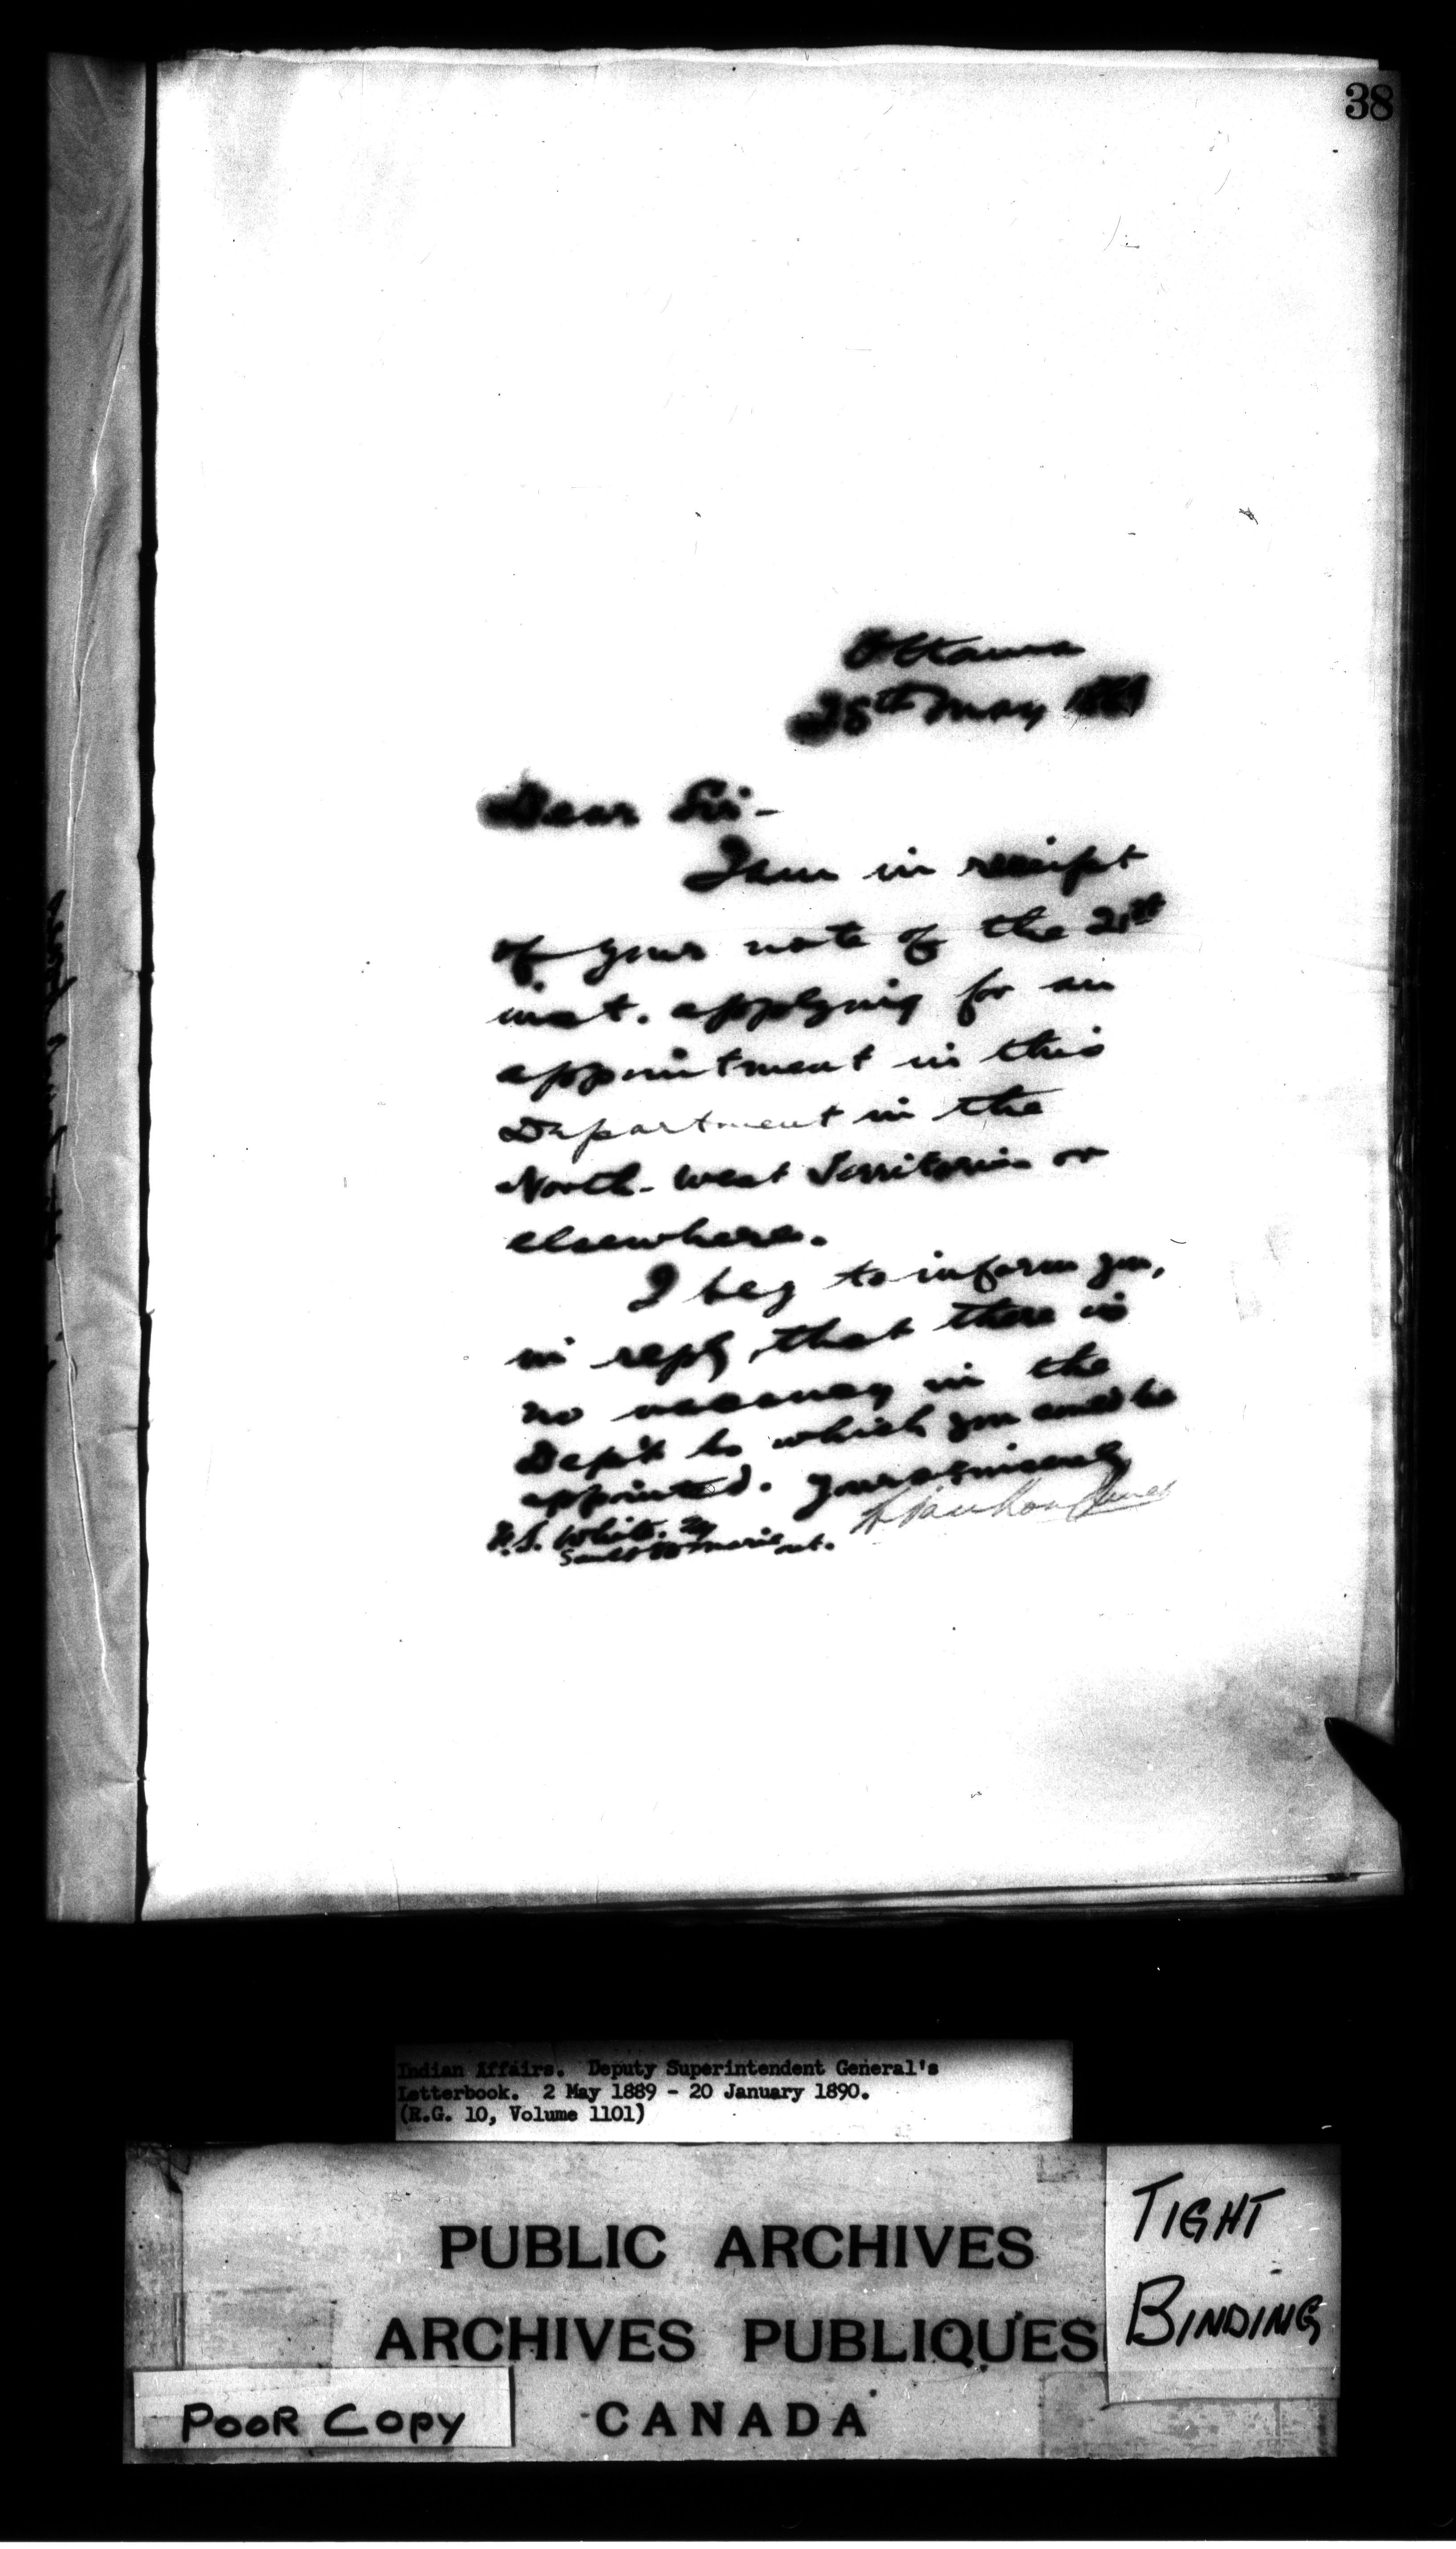 38
Ottawa
28th May 1889
Dear Sir-
I am in receipt
of your note of the 21st
inst. applying for an
appointment in this
Department in the
North-West Territories or
elsewhere.
I beg to inform you,
in reply, that there is
no vacancy in the
Dep't to which you could be
appointed. Yours sincerely
L. Vankoughnet
White. Esq
Sault Ste Marie Ont.
Indian Affairs. Deputy Superintendent General's
Letterbook. 2 May 1889 - 20 January 1890.
(R.G. 10, Volume 1101)
PUBLIC ARCHIVES
ARCHIVES PUBLIQUES
CANADA
TIGHT
BINDING
POOR COPY